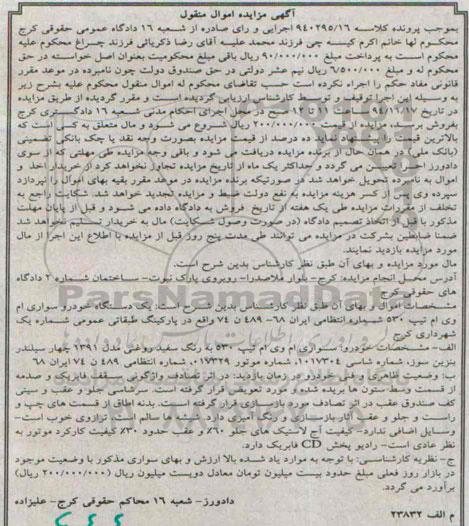 آگهی مزایده اموال منقول
بموجب پرونده کلاسه ۹۴۰۲۹۵/۱۶ اجرایی و رای صادره از شعبه ۱۶ دادگاه عمومی حقوقی کرج
محکوم لها خانم اکرم کیسه چی فرزند محمد علیه آقای رضا ذکریائی فرزند چراغ محکوم علیه
محکوم است به پرداخت مبلغ ۹۰/۰۰۰/۰۰۰ ریال باقی مبلغ محکومیت بعنوان اصل خواسته در حق
محکوم له و مبلغ ۶/۵۰۰/۰۰۰ ریال نیم عشر دولتی در حق صندوق دولت چون نامبرده در موعد مقرر
قانونی مفاد حکم را اجراء نکرده است حسب تقاضای محکوم له اموال منقول محکوم علیه بشرح زیر
به وسیله این اجرا توقیف و توسط کارشناس ارزیابی گردیده است و مقرر گردیده از طریق مزایده
در تاریخ صبح در محل اجرای احکام مدنی شعبه ۱۶ دادگستری کرج
بفروش برسد ۲۰۰/۰۰۰/۰۰۰ ریال شروع می شود و مال متعلق به کسی است که
بالاترین قیمت نماید ده درصد از قیمت مزایده بصورت وجه نقد یا چک بانکی تضمینی
(بانک ملی) در همان حال از برنده مزایده دریافت می شود و باقی وجه مزایده طی مهلتی که از سوی
دادورز اجرا تعیین می گردد و حداکثر یک ماه از تاریخ مزایده تجاوز نخواهد کرد از خریدار اخذ و
اموال به نامبرده تحویل خواهد شد در صورتیکه برنده مزایده در موعد مقرر بقیه بهای اموال را نپردازد
سپرده وی پس از کسر هزینه مزایده به نفع دولت ضبط و مزایده تجدید خواهد شد. شکایت راجع به
تخلف از مقررات مزایده طی یک هفته از تاریخ فروش به دادگاه داده می شود و قبل از پایان مهلت
مذکور یا قبل از اتخاذ تصمیم دادگاه (در صورت وصول شکایت) مال به خریدار تسلیم نخواهد شد
ضمنا ضابطین بشرکت در مزایده می توانند طی مدت پنج روز قبل از مزایده با اطلاع این اجرا از مال
مورد مزایده بازدید نمایند.
مال مورد مزایده و بهای آن طبق نظر کارشناس بدین شرح است
آدرس محل انجام مزایده: کرج- بلوار ملاصدرا- روبروی پارک نبوت- ساختمان شماره ۲ دادگاه
های حقوقی کرج
مشخصات اموال و بهای آن طبق نظر کارشناس بدین شرح است: یک دستگاه خودرو سواری ام
وی ام تیپ ۵۳۰ شماره انتظامی ایران ۶۸- ۴۸۹ ن ۷۴ واقع در پارکینگ طبقاتی عمومی شماره یک
شهرداری کرج
الف- مشخصات خودرو: سواری ام وی ام تیپ ۵۳۰ به رنگ سفید روغنی مدل ۱۳۹۱ چهار سیلندر
بنزین سوز، شماره شاسی ۱۰۱۶۷۳۰۴ شماره موتور ۰۱۷۳۲۹، شماره انتظامی ۴۸۹ ن ۷۴ ایران ۶۸
ب: وضعیت ظاهری و فنی خودرو در زمان بازدید: در اثر تصادف واژگونی سقف فابریک و صدمه
از قسمت وسط ستون ها بریده شده و مورد تعویض قرار گرفته است. سینی جلو و عقب و سینی
کف صندوق عقب در اثر تصادف مورد بازسازی قرار گرفته است. بدنه اطاق از قسمت های چپ و
راست و جلو و عقب آثار بازسازی و رنگ آمیزی دارد. شیشه ها سالم است. تزئینات تودوزی خوب است-
وسایل اضافی ندارد- کیفیت آج لاستیک های جلو ۶۰٪ و عقب حدود ۳۰٪ کیفیت کارکرد موتور به
نظر عادی است- رادیو پخش CD فابریک دارد.
ج- نظریه کارشناسی: با توجه به موارد یاد شده بالا ارزش و بهای سواری مذکور با وضعیت موجود
در بازار روز فعلی مبلغ حدود بیست میلیون تومان معادل دویست میلیون ریال (۲۰۰/۰۰۰/۰۰۰ ریال)
برآورد می گردد.
دادورز- شعبه ۱۶ محاکم حقوقی کرج- علیزاده
م الف ۲۳۸۳۲
ParsNamadData